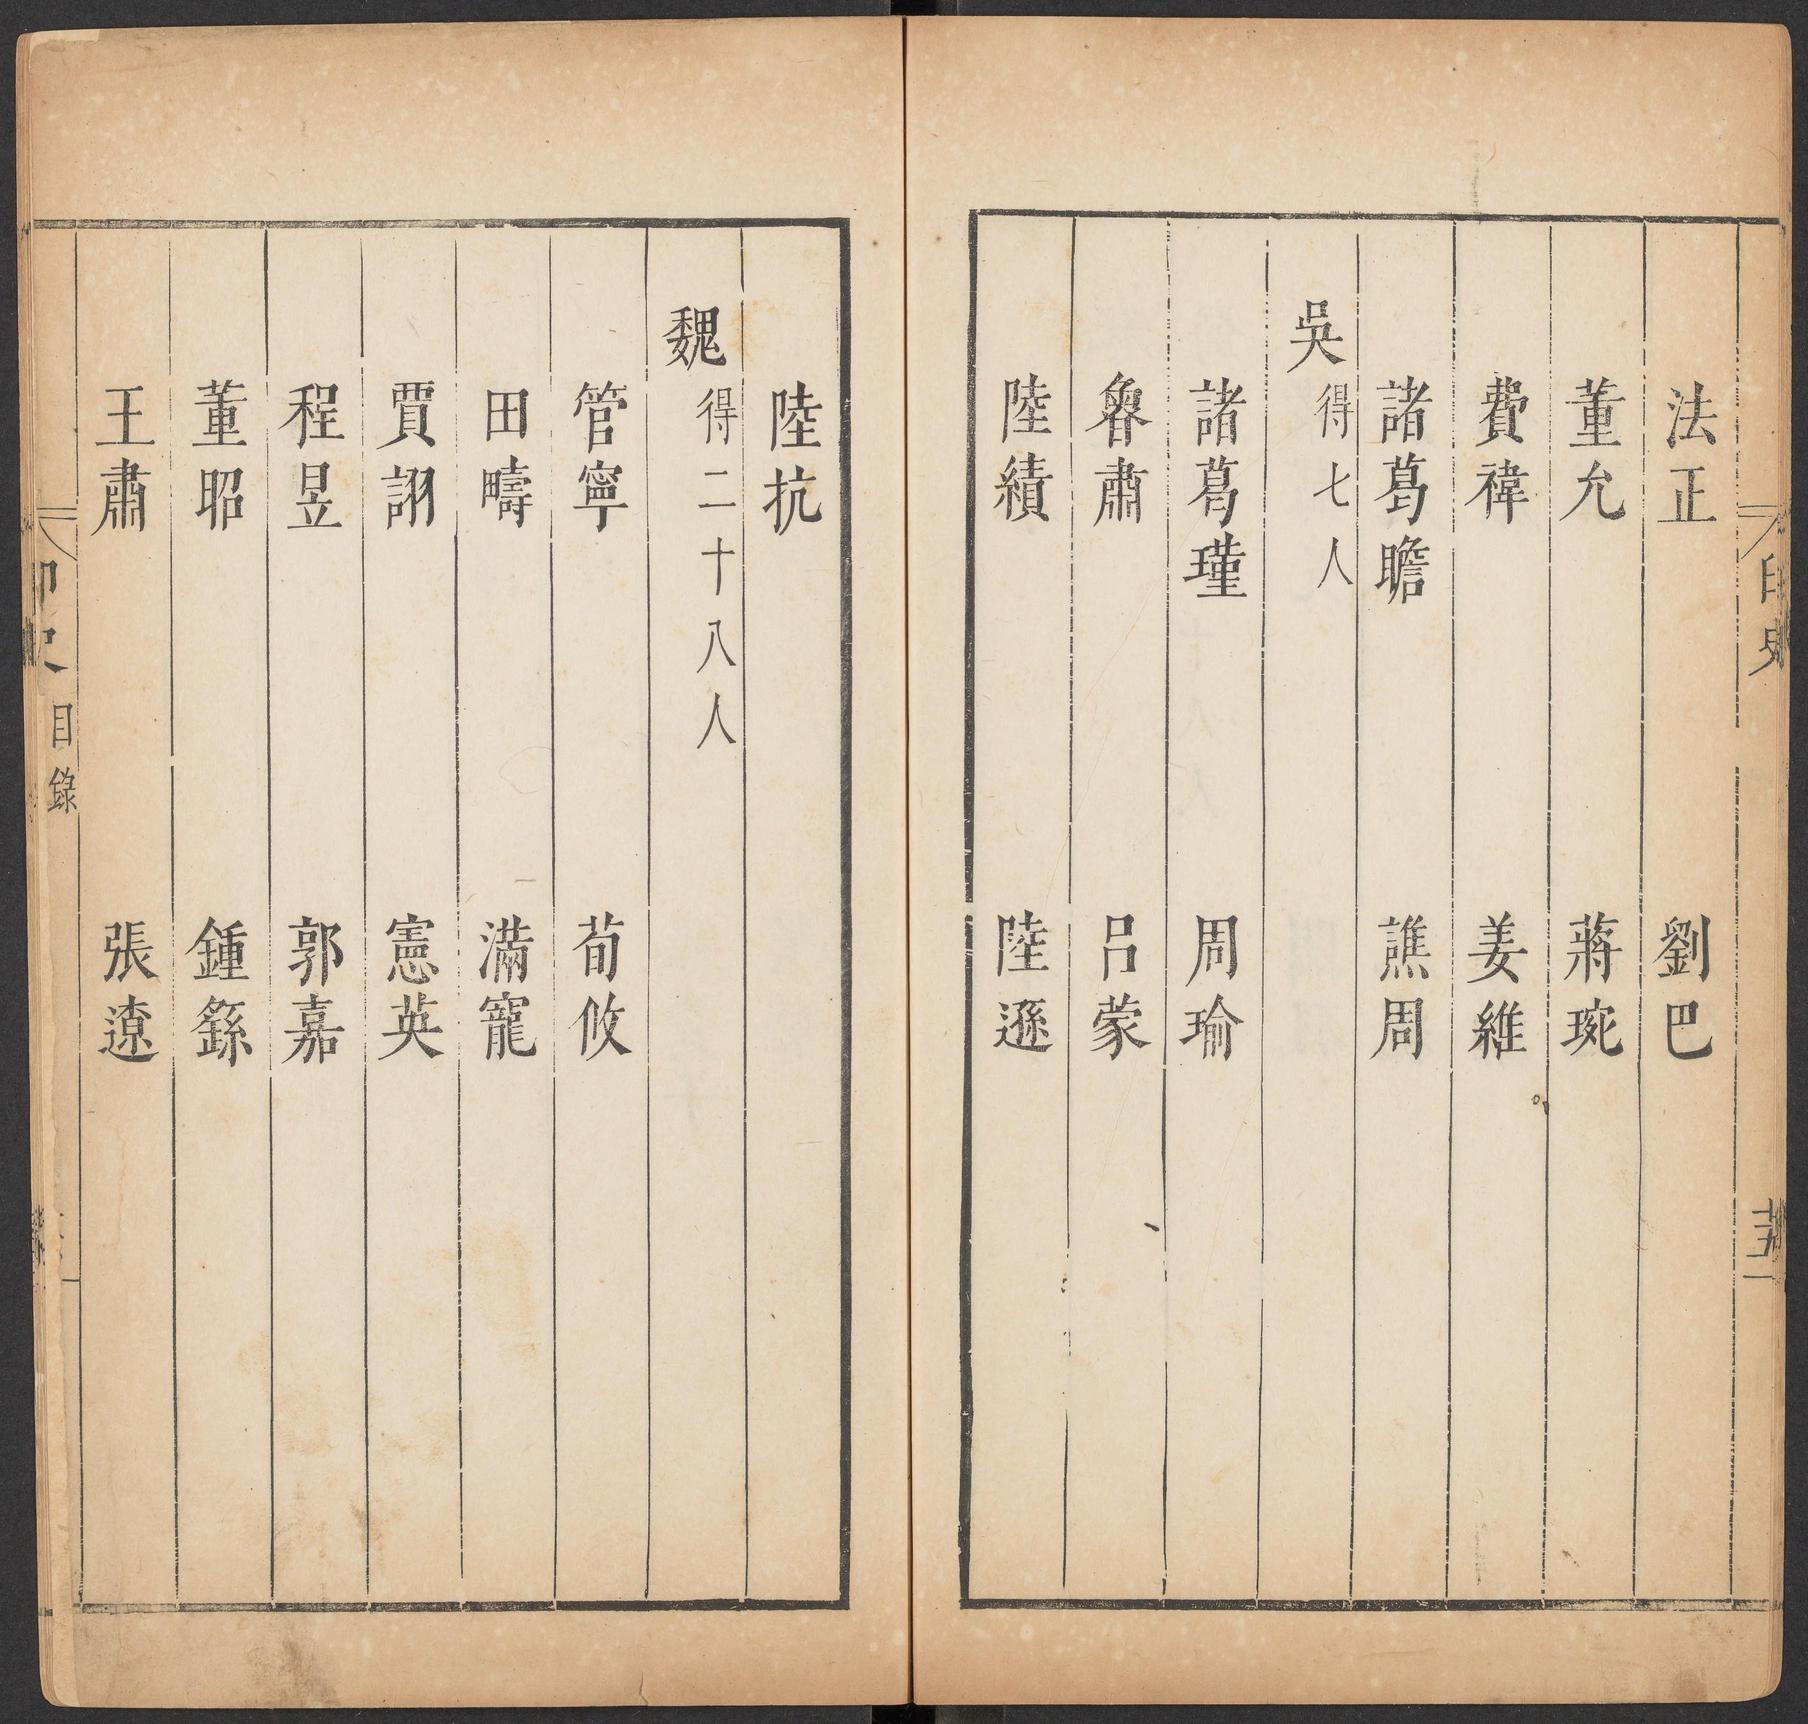 印史
法正 劉巴
董允 蔣琬
費禕 姜維
諸葛瞻 譙周
吳 得七人
諸葛瑾 周瑜
魯肅 吕蒙
陸績 陸遜
陸抗
魏 得二十八人
管寧 荀攸
田疇 滿寵
賈詡 憲英
程昱 郭嘉
董昭 鍾繇
王肅 張遼
印史 目錄